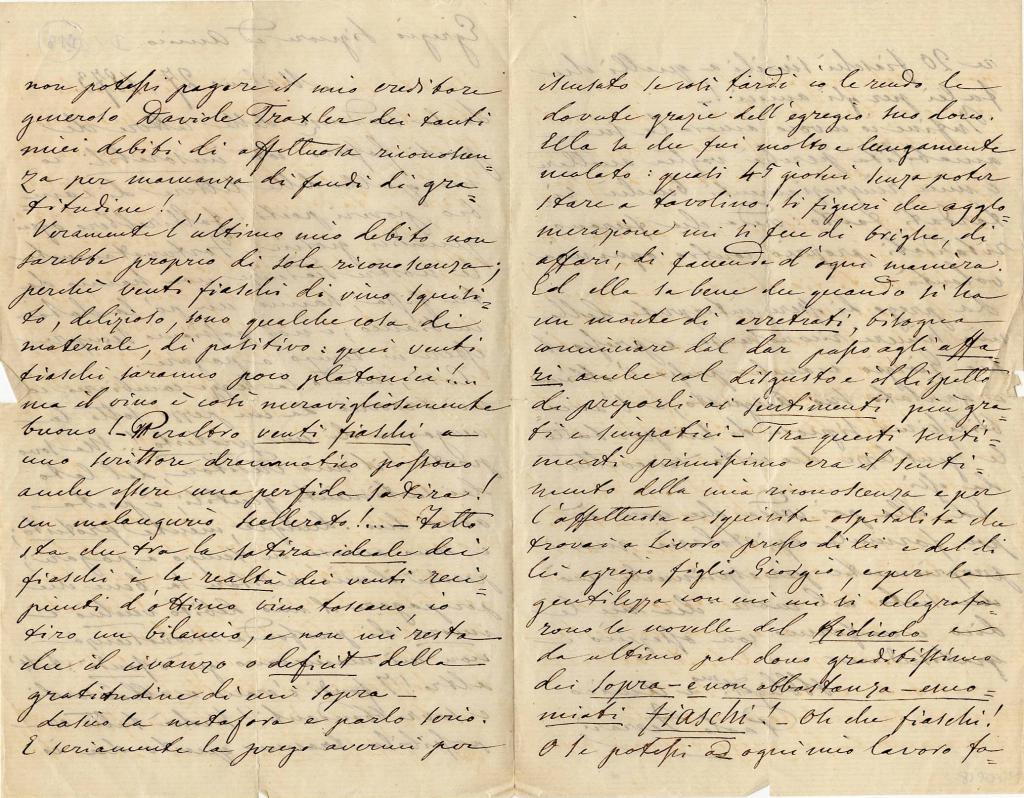 non potessi pagare il mio creditore
generoso Davide Traxler dei tanti
miei debiti di affettuosa riconoscen=
za per mancanza di fondi di gra=
titudine!
Veramente l'ultimo mio debito non
sarebbe proprio di sola riconoscenza;
perchè venti fiaschi di vino squisi=
to, delizioso, sono qualche cosa di
materiale, di positivo: quei venti
fiaschi saranno poco platonici!...
ma il vino è così meravigliosamente
buono! – Peraltro venti fiaschi a
uno scrittore drammatico possono
anche essere una perfida satira!
un malaugurio scellerato!... – Fatto
sta che tra la satira ideale dei
fiaschi e la realtà dei venti reci=
pienti d'ottimo vino toscano, io
tiro un bilancio, e non mi resta
che il civanzo o deficit della
gratitudine di cui sopra –
Lascio la metafora e parlo serio.
E seriamente la prego avermi per
iscusato se così tardi io le rendo le
dovute grazie dell'egregio suo dono.
Ella sa che fui molto e lungamente
malato: quasi 45 giorni senza poter
stare a tavolino! Si figuri che agglo=
merazione mi si fece di brighe, di
affari, di faccende d'ogni maniera.
Ed ella sa bene che quando si ha
un monte di arretrati, bisogna
cominciare dal dar passo agli affa=
ri anche col disgusto e il dispetto
di preporli ai sentimenti più gra=
ti e simpatici – Tra questi senti=
menti primissimo era il senti=
mento della mia riconoscenza e per
l'affettuosa e squisita ospitalità che
trovai a Livorno presso di lei e del di
lei egregio figlio Giorgio, e per la
gentilezza con cui mi si telegrafa=
rono le novelle del Ridicolo e
da ultimo pel dono graditissimo
dei sopra – e non abbastanza – enco=
miati fiaschi! – Oh che fiaschi!
O se potessi ad ogni mio lavoro fa=